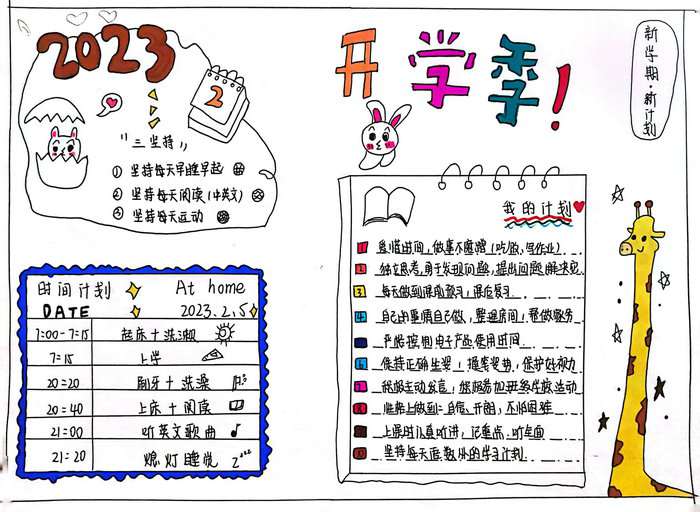 2023
2
"三坚持"
① 坚持每天早睡早起
② 坚持每天阅读(中英文)
③ 坚持每天运动
时间计划 At home
DATE 2023.2.5
7:00-7:15 起床+洗漱
7:15 上学
20:20 刷牙+洗澡
20:40 上床+阅读
21:00 听英文歌曲
21:20 熄灯睡觉
开学季!
新学期·新计划
我的计划
1 珍惜时间,做事不磨蹭(吃饭,写作业)
2 独立思考,勇于发现问题,提出问题,解决
3 每天做到课前预习,课后复习
4 自己的事情自己做,整理房间,帮做家务
严格控制电子产品使用时间
6 保持正确坐姿,握笔姿势,保护好视力
7 积极主动发言,积极参加班级学校活动
8 做到:自信、开朗、不怕困难
9 上课时认真听讲,记重点
10 坚持每天学习计划